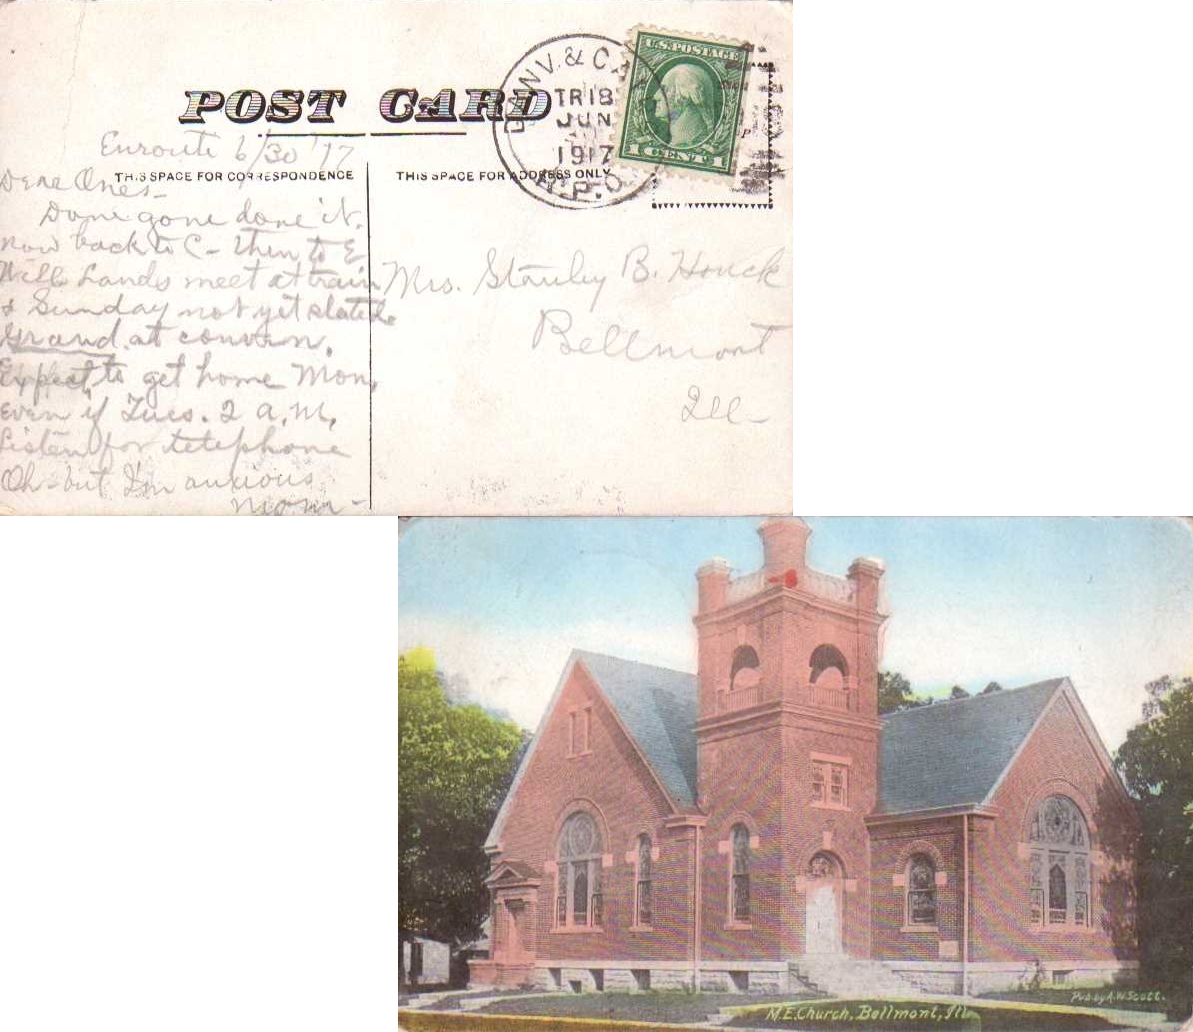 POST CARD
DANV. & CA
TR 18
JUN
1917
R.P.O.
U.S. POSTAGE
1 CENT 1
Enroute 6/30 '17
THIS SPACE FOR CORRESPONDENCE
THIS SPACE FOR ADDRESS ONLY
Dere Ones -
Done gone done it.
Now back to C - then to E
Will Lands meet at train
& Sunday not yet slated.
Grand at convn.
Expect to get home Mon,
even if Tues. 2 a.m,
Listen for telephone
Oh - but I'm anxious
Mrs. Stanley B. Houck
Bellmont
Ill -
M.E. Church, Bellmont, Ill.
Pub by A.W. Scott.